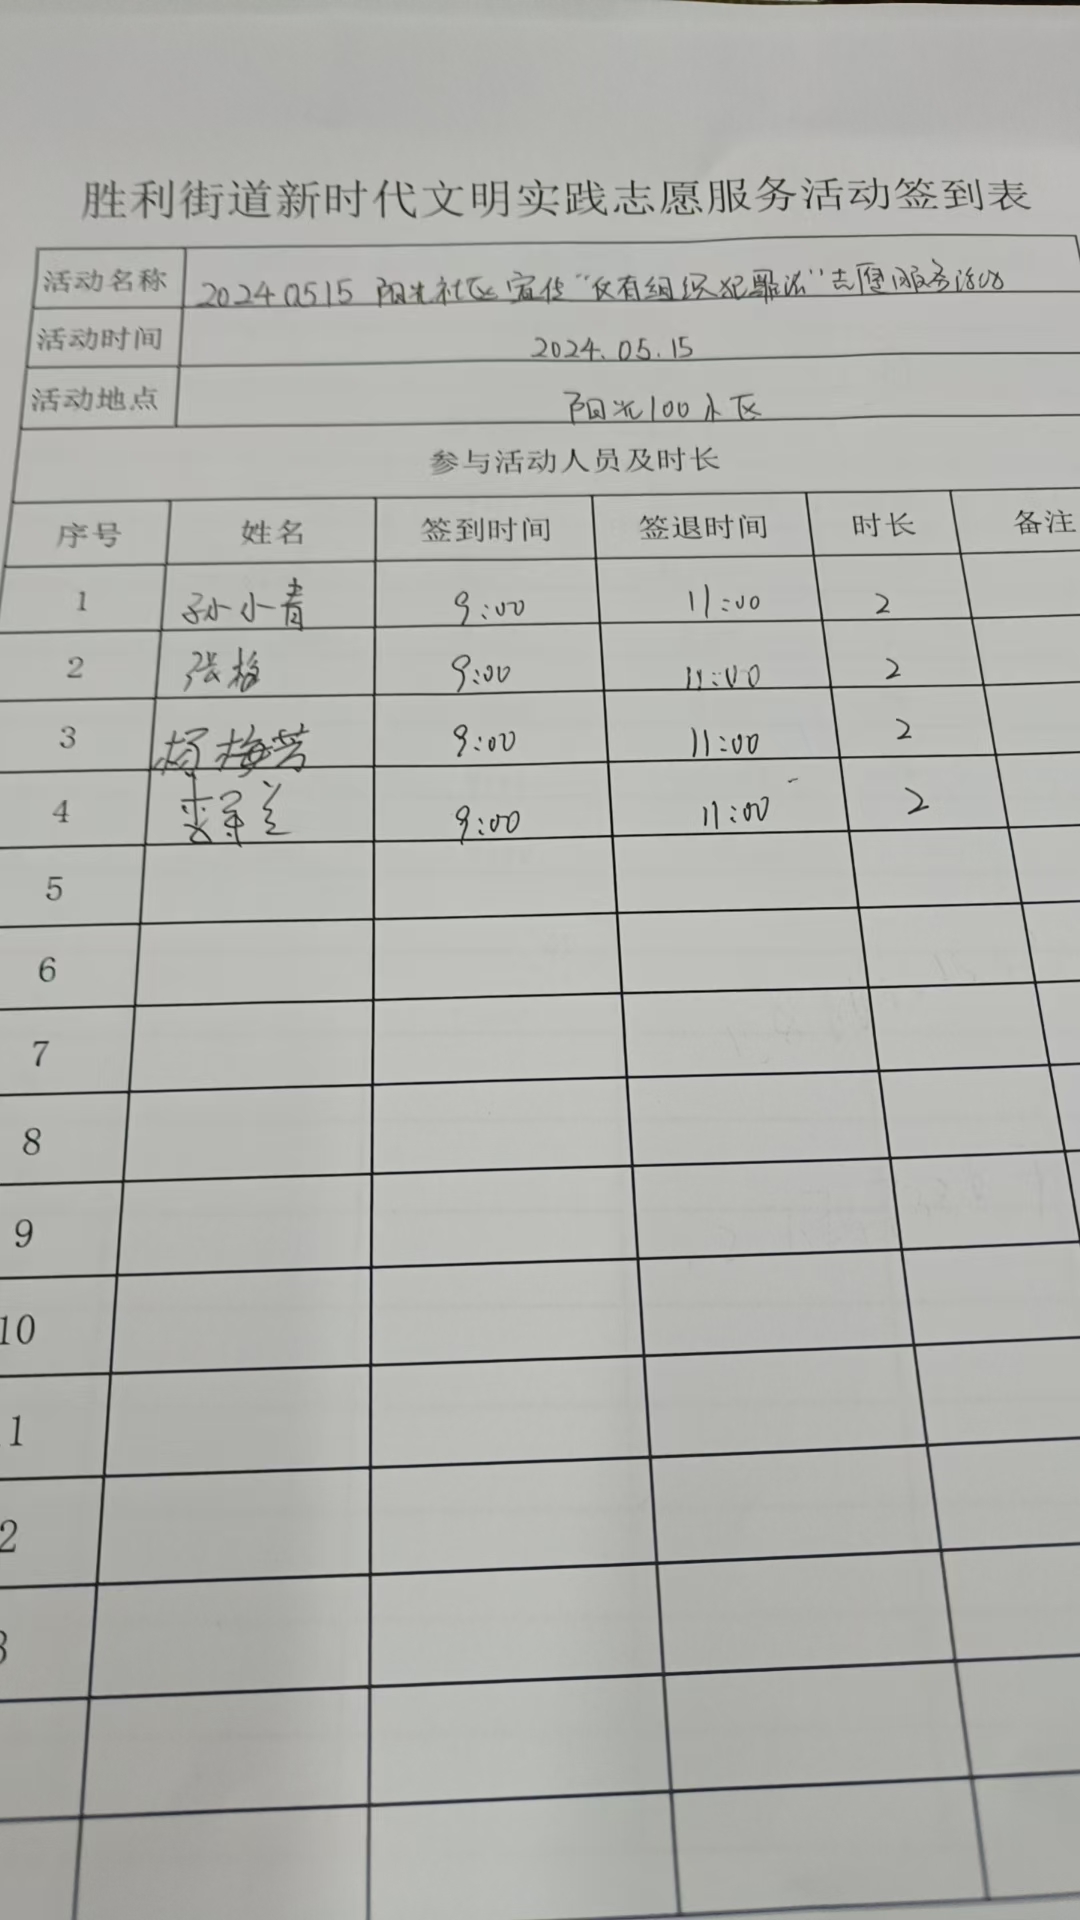 胜利街道新时代文明实践志愿服务活动签到表
活动名称 20240515 阳光社区宣传“反有组织犯罪法”志愿服务活动
活动时间 2024.05.15
活动地点 阳光100小区
参与活动人员及时长
序号 姓名 签到时间 签退时间 时长 备注
1 孙小青 9:00 11:00 2
2 张 9:00 11:00 2
3 杨梅芳 9:00 11:00 2
4 9:00 11:00 2
5
6
7
8
9
10
1
2
3